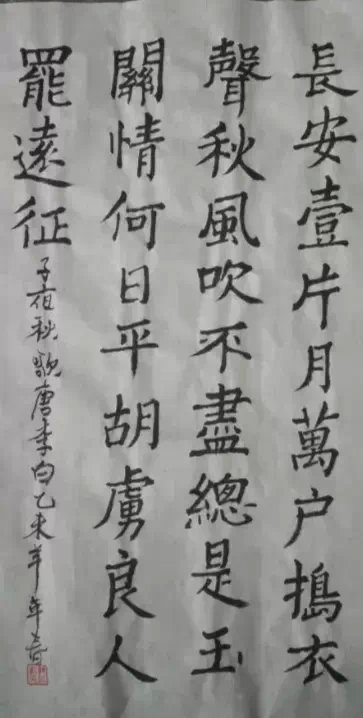 長安壹片月萬户搗衣
聲秋風吹不盡總是玉
關情何日平胡虜良人
罷遠征
子夜秋歌唐李白乙未年年春